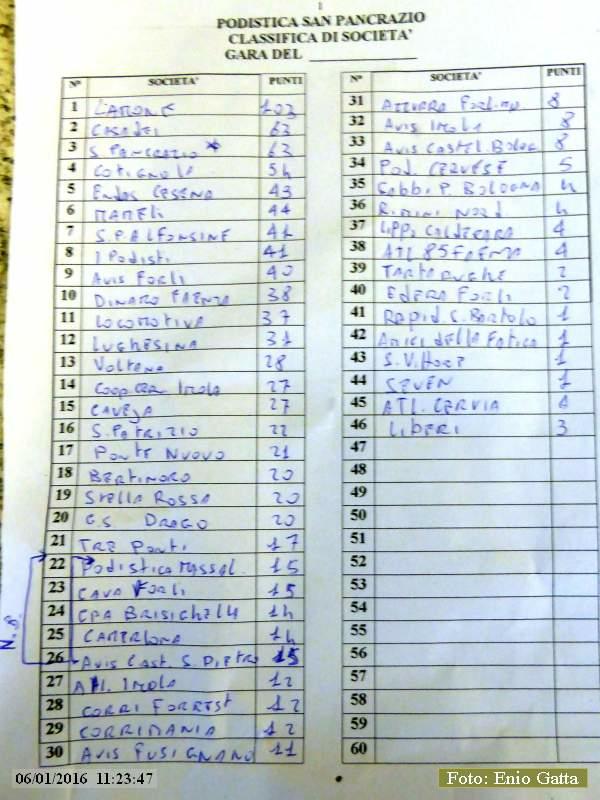 1
PODISTICA SAN PANCRAZIO
CLASSIFICA DI SOCIETA'
GARA DEL ____________
N° SOCIETA' PUNTI
1 L'AMONE 103
2 CASADEI 63
3 S. PANCRAZIO * 63
4 COTIGNOLA 54
5 ENDAS CESENA 43
6 MAMELI 44
7 S.P. ALFONSINE 41
8 I Podisti 41
9 AVIS FORLI 40
10 DINAMO FAENZA 38
11 LOCOMOTIVA 37
12 LUGHESINA 31
13 VOLTANA 28
14 COOP. CER. IMOLA 27
15 CAVEJA 27
16 S. PATRIZIO 22
17 PONTE NUOVO 21
18 BERTINORO 20
19 STELLA ROSSA 20
20 G.S. DRAGO 20
21 TRE PONTI 17
22 PODISTICA MASSAL. 15
23 CAVA FORLI 15
24 CPA BRISIGHELLA 14
25 CAMERLONA 14
26 AVIS CAST. S. PIETRO 15
27 ATL. IMOLA 12
28 CORRI FORREST 12
29 CORRIMANIA 12
30 AVIS FUSIGNANO 11
N.B.
N° SOCIETA' PUNTI
31 AZZURRA 8
32 AVIS IMOLA 8
33 AVIS CASTEL BOLOG. 8
34 POD. CERVESE 5
35 GABBI P. BOLOGNA 4
36 RIMINI NORD 4
37 LIPPO CALDERARA 4
38 ATL 85 FAENZA 4
39 TARTARUGHE 2
40 EDERA FORLI 2
41 RAPID. S. BARTOLO 1
42 AMICI DELLA FATICA 1
43 S. VITTORE 1
44 SEVEN 1
45 ATL. CERVIA
46 LIBERI 3
47
48
49
50
51
52
53
54
55
56
57
58
59
60
06/01/2016 11:23:47
Foto: Enio Gatta